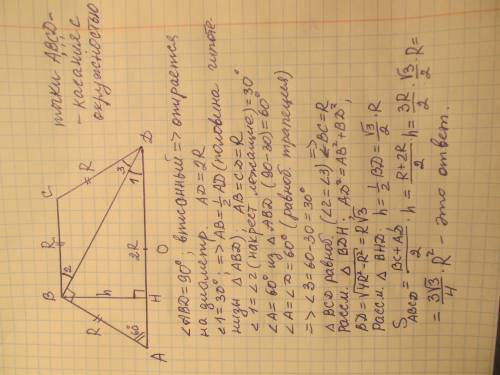 точки ABCD-
- касания с
окружностью
B
R
C
R
R
2
h
3
1
D
60°
A
H
2R
O
∠ABD=90°; вписанный => опирается
на диаметр. AD=2R
∠1=30°; => AB=½AD(половина гипоте-
нузы △ABD), AB=CD=R
∠1=∠2(накрест лежащие)=30°
∠A=60° из △ABD (90-30)=60°
∠A=∠D=60° (равноб. трапеция)
=> ∠3=60-30=30°
△BCD равноб. (∠2=∠3) => BC=R
Рассм. △BDH: AD²=AB²+BD²,
BD=√4R²-R²=R√3
Рассм. △BHD: h=½BD=√3/2·R
S_ABCD=(BC+AD)/2·h=(R+2R)/2·h=3R/2·√3/2·R=
=3√3/4·R² - это ответ.